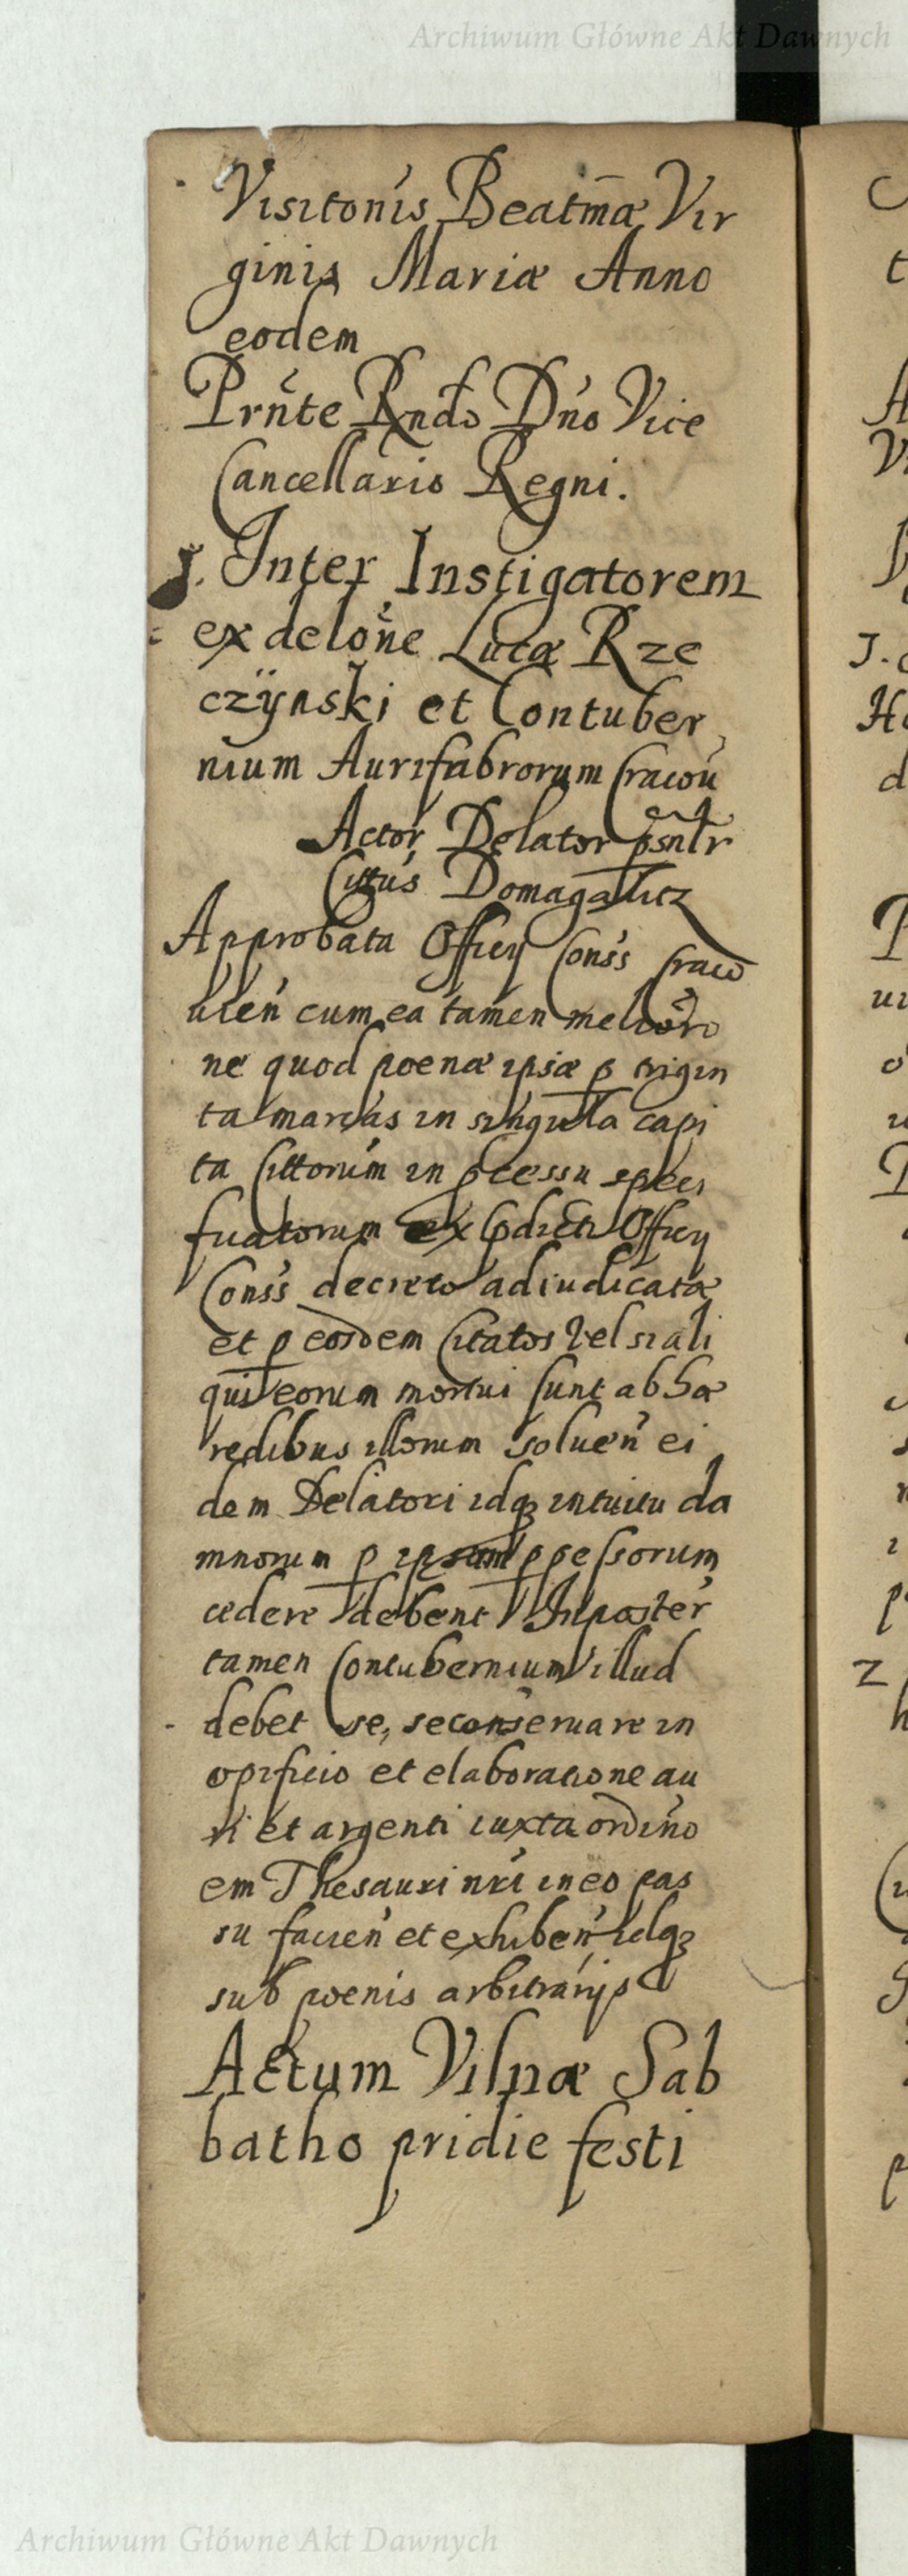 Archiwum Główne Akt Dawnych
Visitonis Beatmæ Vir
ginis Mariæ Anno
eodem
Prnte Rndo Dno Vice
Cancellario Regni.
J. Inter Instigatorem
ex delone Lucæ Rze
czÿnski et Contuber
nium Aurifabrorum Cracou
Actor Delator psntr
Citus Domagalicz
Approbata Officij Conss Craco
uien cum ea tamen meliõro
ne quod poenæ ipsæ p trigin
ta marcas in singula capi
ta Cittorum in pcessu speci
ficatorum ex pdicti Officij
Conss decreto adiudicatæ
et p eosdem Citatos vel si ali
qui eorum mortui sunt ab hæ
redibus illorum soluen ei
dem Delatori idq intuitu da
mnorum p ipsum ppessorum
cedere debent Inposter
tamen Contubernium illud
debet se, se conseruare in
opificio et elaboratione au
ri et argenti iuxta ordino
em Thesauri nri in eo pas
su facien et exhiben idq
sub poenis arbitrarijs
Actum Vilnæ Sab
batho pridie festi
Archiwum Główne Akt Dawnych